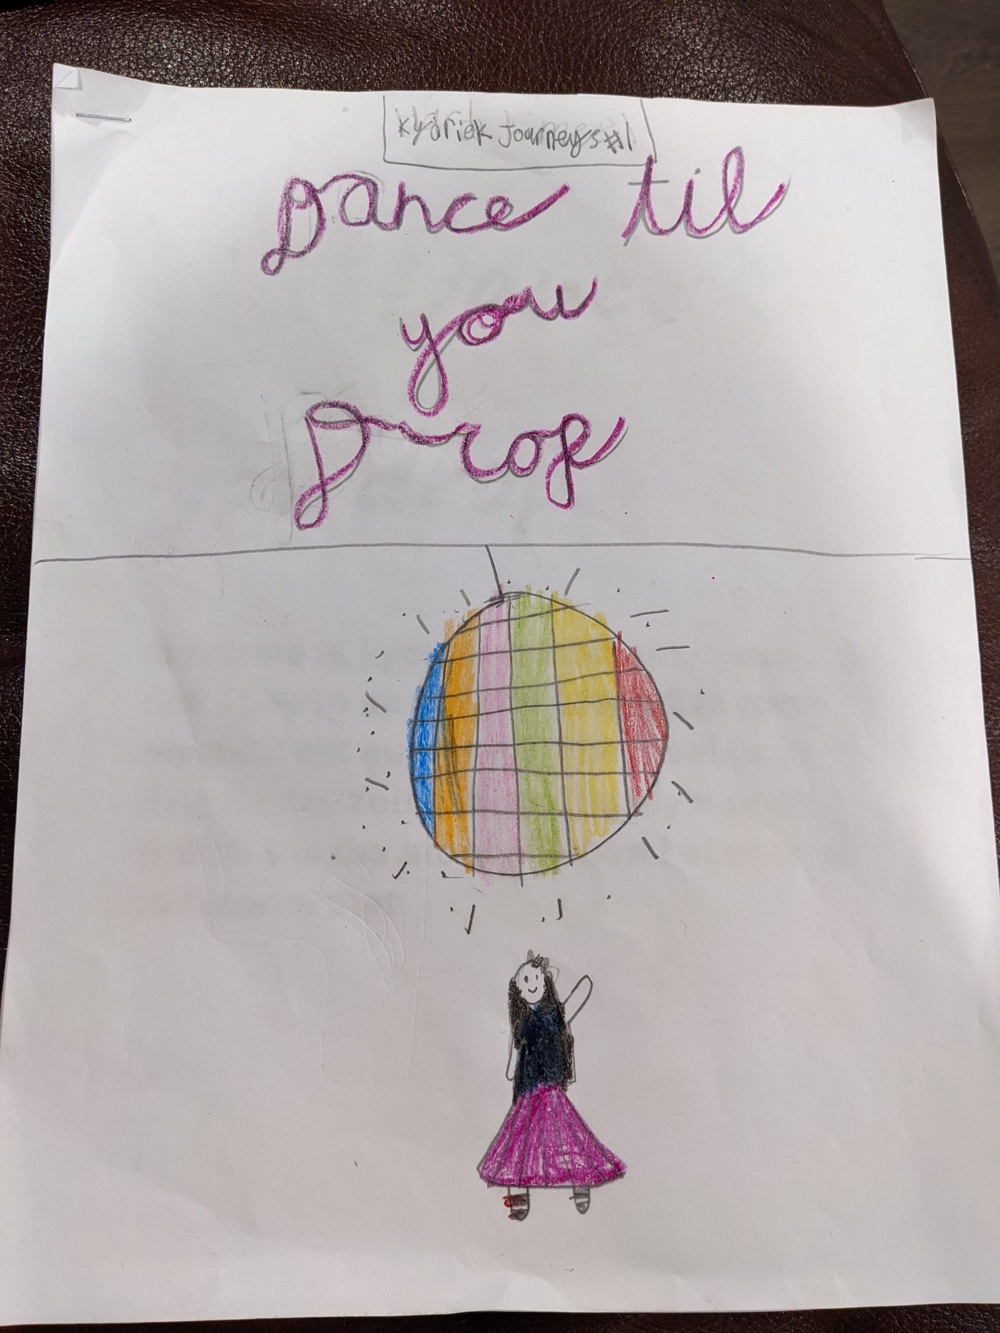 Kydriek Journeys #1
Dance til
you
Drop